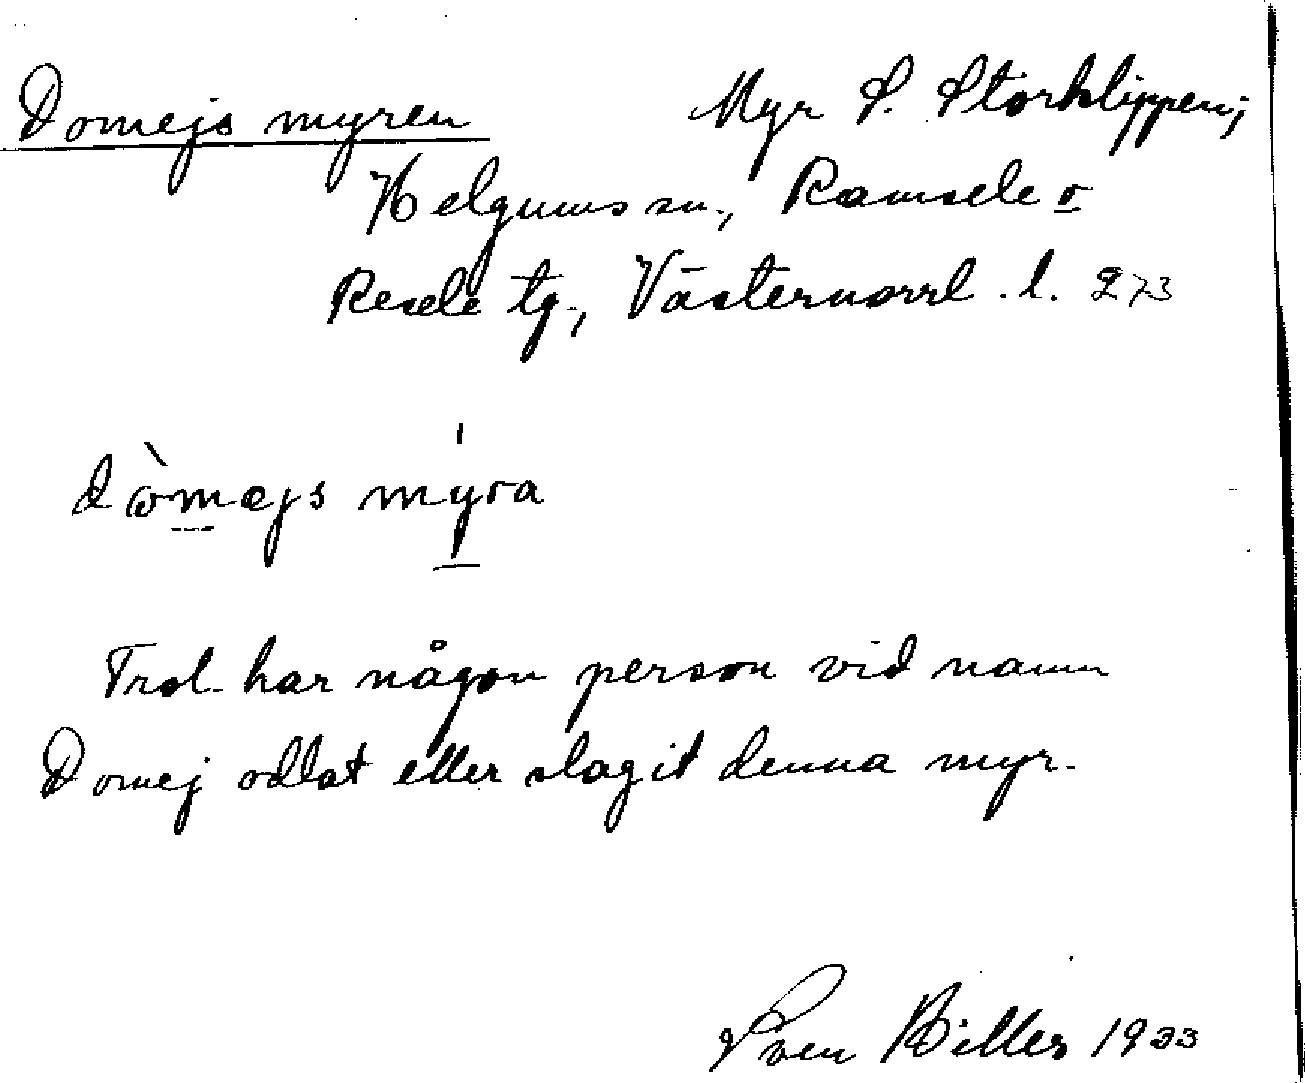 Domejs myren Myr S. Storklippen;
Helgums sn., Ramsele o
Resele tg., Västernorrl. l. 273
dòmejs myra
Trol. har någon person vid namn
Domej odlat eller slagit denna myr.
Sven Billes 1933